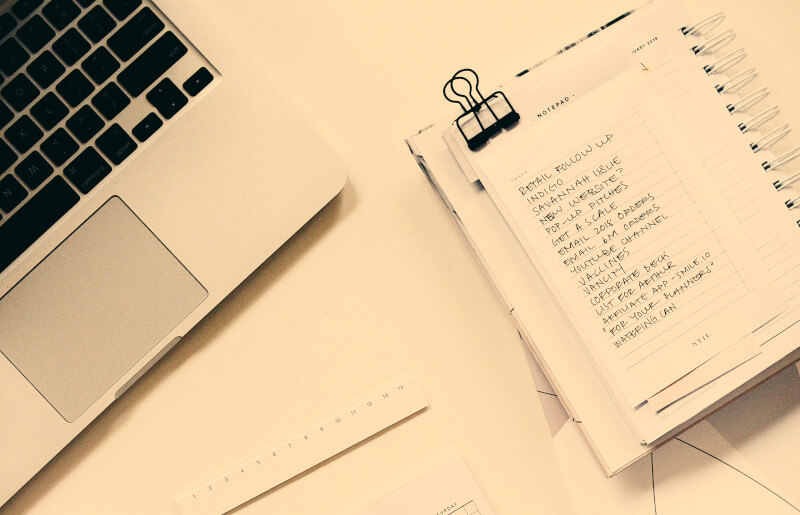 UARY 2019
· NOTEPAD ·
TASKS
RETAIL FOLLOW UP
INDIGO
SAVANNAH ISSUE
NEW WEBSITE?
POP-UP PITCHES
GET A SCALE
EMAIL 2018 ORDERS
EMAIL 6M ORDERS
YOUTUBE CHANNEL
VACCINES
VANCITY
CORPORATE DECK
LIST FOR ARTHUR
AFFILIATE APP - SMILE.IO
"FOR YOUR PLANNERS"
WATERING CAN
STIL
1 2 3 4 5 6 7 8 9 10 11 12 13 14
option